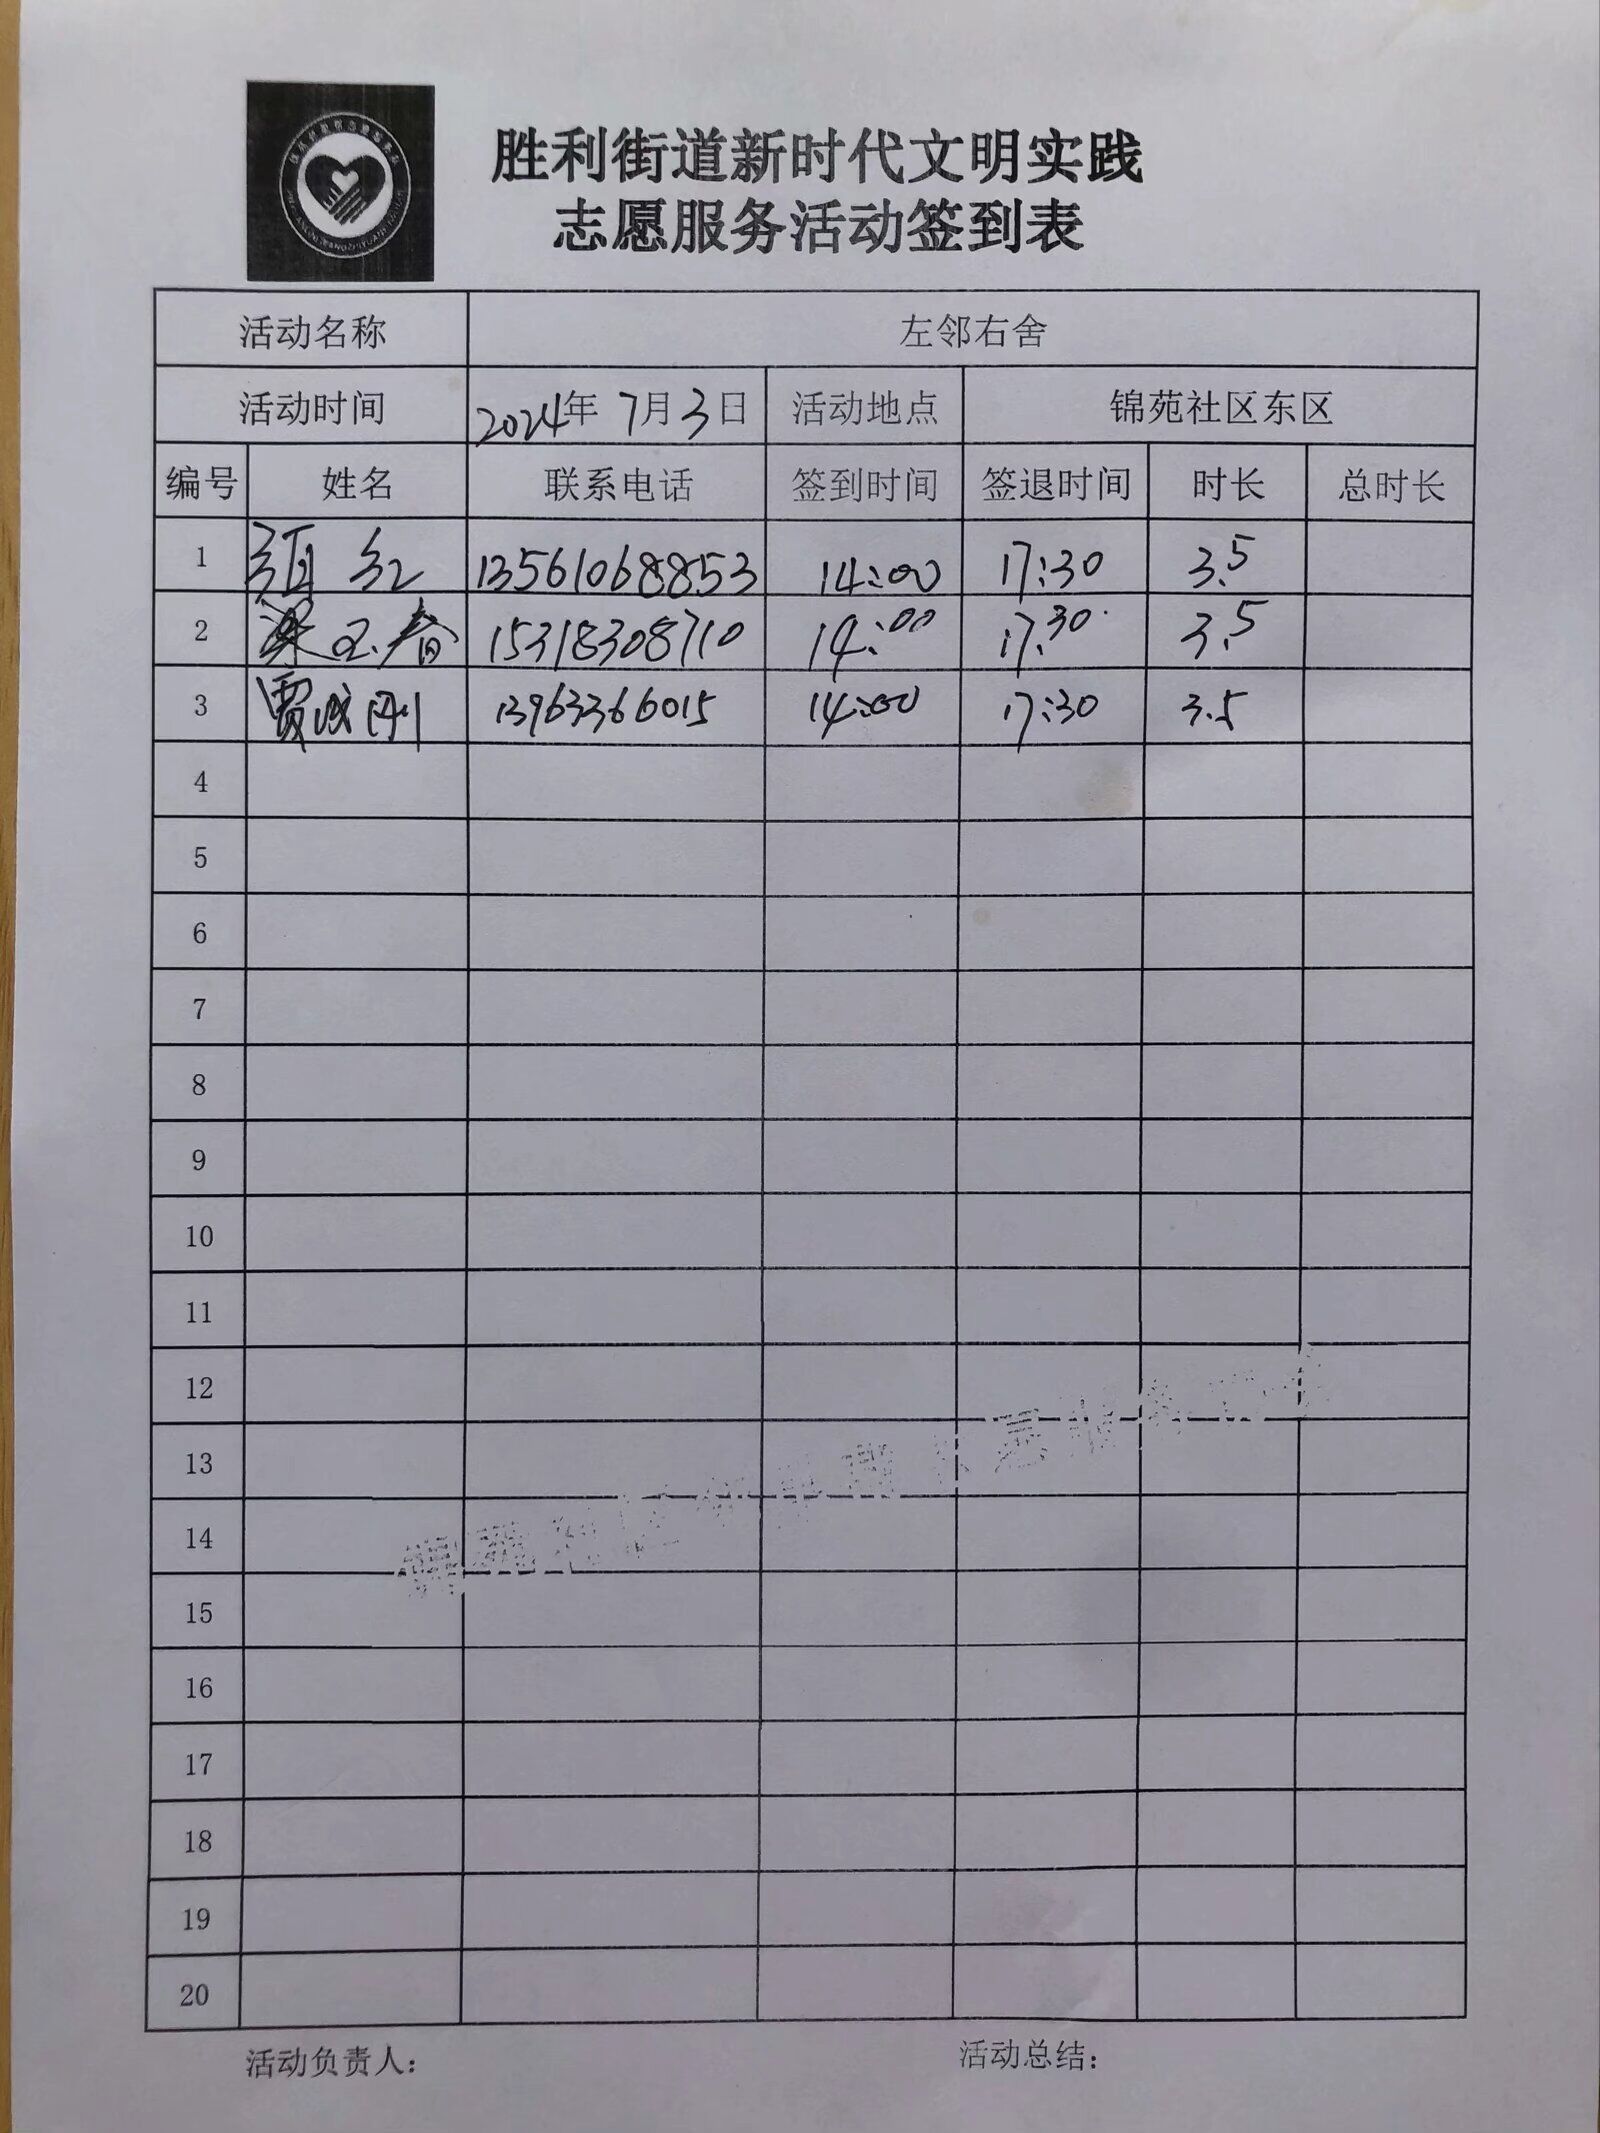 胜利街道新时代文明实践
志愿服务活动签到表
活动名称 左邻右舍
活动时间 2024年 7月3日 活动地点 锦苑社区东区
编号 姓名 联系电话 签到时间 签退时间 时长 总时长
1 红 13561068853 14:00 17:30 3.5
2 梁玉春 15318308710 14:00 17:30 3.5
3 贾成刚 13963366015 14:00 17:30 3.5
4
5
6
7
8
9
10
11
12
13
14
15
16
17
18
19
20
活动负责人: 活动总结: